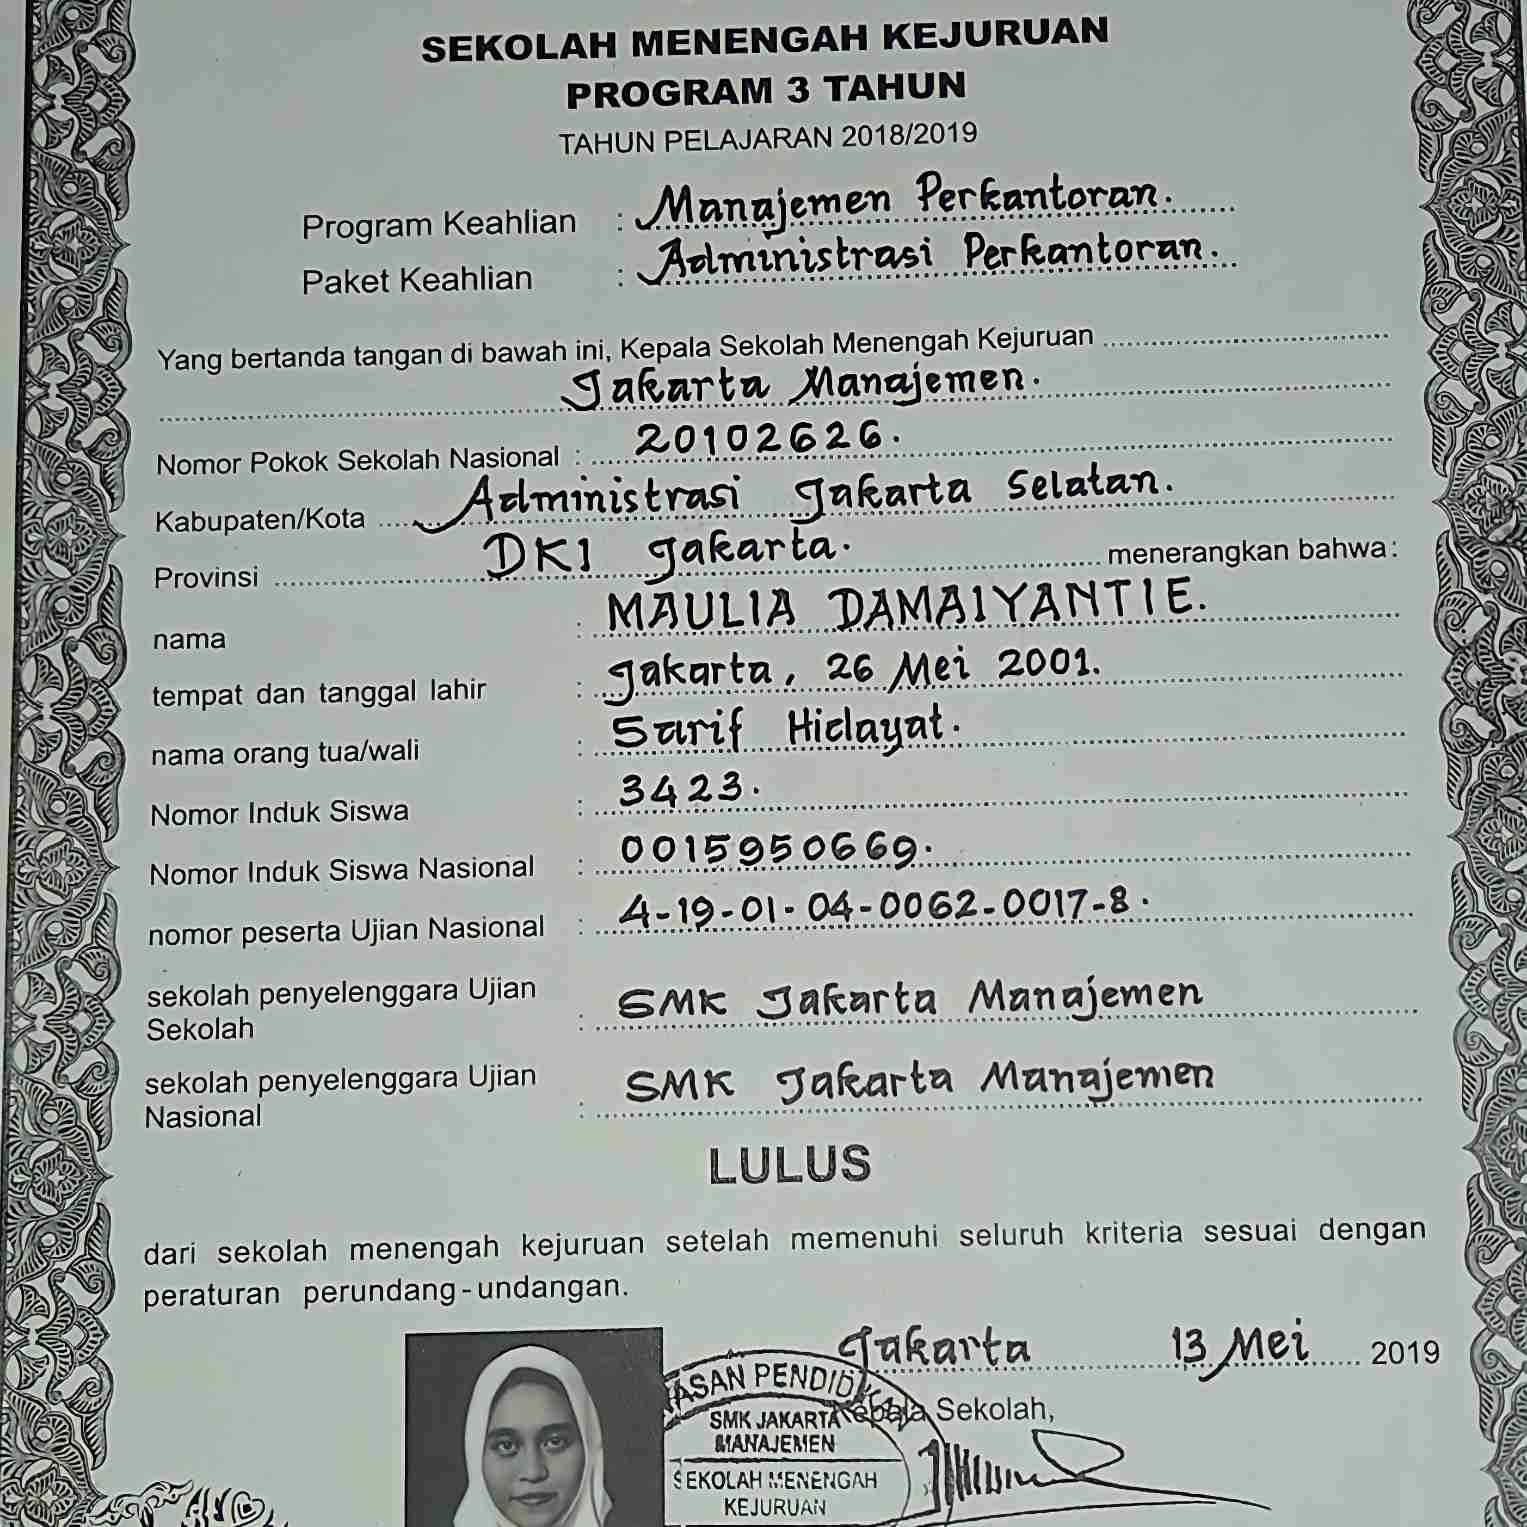 SEKOLAH MENENGAH KEJURUAN
PROGRAM 3 TAHUN
TAHUN PELAJARAN 2018/2019
Program Keahlian : Manajemen Perkantoran.
Paket Keahlian : Administrasi Perkantoran.
Yang bertanda tangan di bawah ini, Kepala Sekolah Menengah Kejuruan
Jakarta Manajemen.
Nomor Pokok Sekolah Nasional : 20102626.
Kabupaten/Kota Administrasi Jakarta Selatan.
Provinsi DKI Jakarta. menerangkan bahwa:
nama : MAULIA DAMAIYANTIE.
tempat dan tanggal lahir : Jakarta, 26 Mei 2001.
nama orang tua/wali : Sarif Hidayat.
Nomor Induk Siswa : 3423.
Nomor Induk Siswa Nasional : 0015950669.
nomor peserta Ujian Nasional : 4-19-01-04-0062-0017-8.
sekolah penyelenggara Ujian
Sekolah : SMK Jakarta Manajemen
sekolah penyelenggara Ujian
Nasional : SMK Jakarta Manajemen
LULUS
dari sekolah menengah kejuruan setelah memenuhi seluruh kriteria sesuai dengan
peraturan perundang-undangan.
Jakarta 13 Mei 2019
Kepala Sekolah,
SMK JAKARTA
MANAJEMEN
SEKOLAH MENENGAH
KEJURUAN